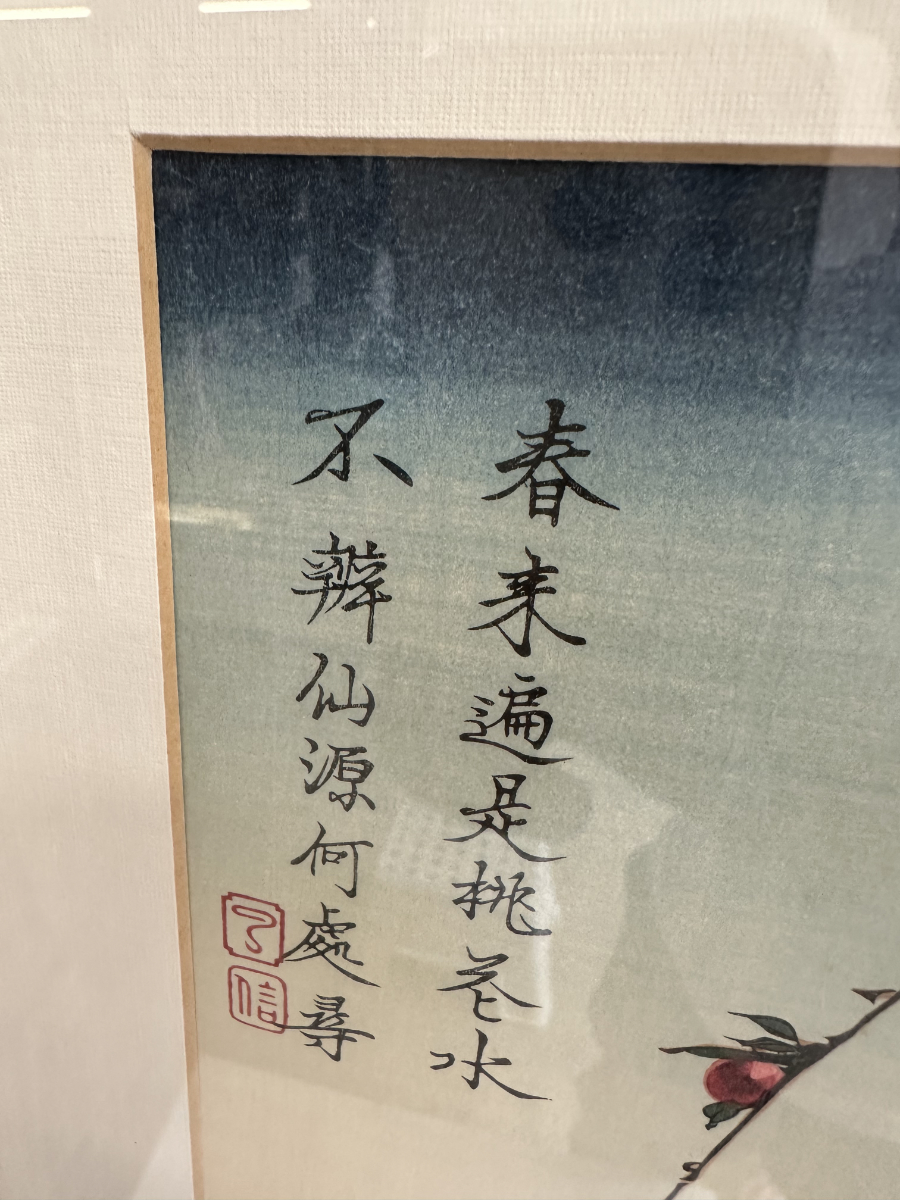 春来遍是桃花水
不辨仙源何處尋
信